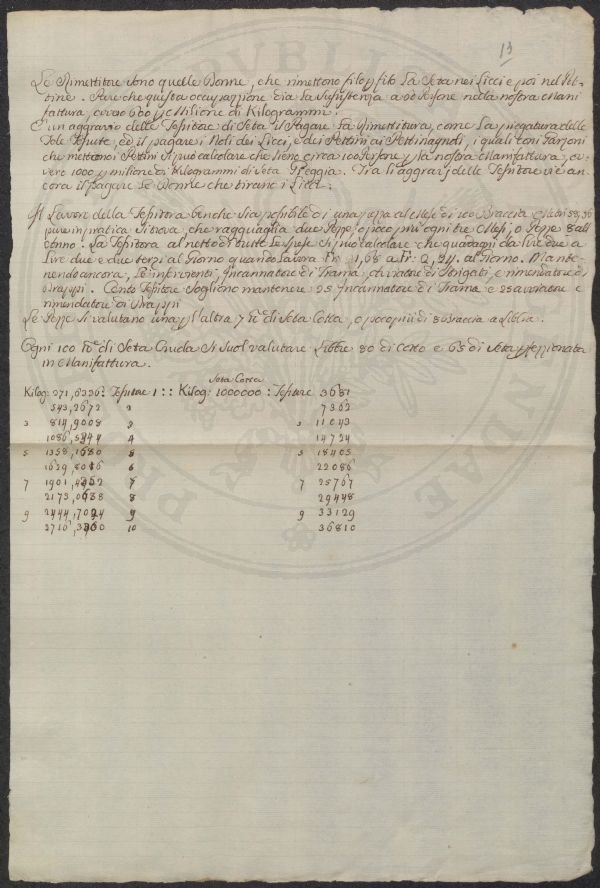 13
Le Rimettitore sono quelle Donne, che rimettono filo p filo la Seta nei Licci e poi nel Pet-
tine. Pare che questa occupazione dia la sussistenza a 60 Persone nella nostra Mani
fattura, ovvero 600 p Milione di Kilogrammi.
E un aggravio delle Tessitore di Seta il Pagare la Rimettitura, come la piegatura delle
Tele Ordite, ed il pagare i Noli dei Licci, e dei Pettini ai Pettinagnoli, i quali con Garzoni
che mettono i Pettini si può calcolare che sieno circa 100 Persone p la nostra Manifattura, ov-
vero 1000 p milione di Kilogrammi di Seta Greggia. Tra li aggravj delle Tessitore vi è an-
cora il pagare le Donne che tirano i Licci.
Il Lavoro della Tessitora benche sia possibile di una pezza al Mese di 100 Braccia o Metri 58,36
pure in pratica si trova, che ragguaglia due Pezze o poco piu ogni tre Mesi, o Pezze 8 all
Anno. La Tessitora al netto di tutte le spese si può calcolare che guadagni da Lire due a
Lire due e due terzi al Giorno quando Lavora Fr. 1,68 a Fr: 2,24. al Giorno. Mante-
nendo ancora, Incannatore di Trama, e rimendatore di
Drappi. Cento Tessitore sogliono mantenere 25 Incannatore di Trama e 25
rimendatore di Drappi
Le Pezze si valutano una p l'altra 7 tt.e di Seta Cotta, o poco piu di 8 Braccia a Libbra.
Ogni 100 tt.e di Seta Cruda si suol valutare Libbre 80 di Cotto e 65 di Seta perfezionata
in Manifattura.
Seta Cotta
Kilog: 271,6336: Tessitore 1 :: Kilog: 1000000 : Tessitore 3681
543,2672 2 7362
3 814,9008 3 3 11043
1086,5344 4 14724
5 1358,1680 5 5 18405
1629,8016 6 22086
7 1901,4352 7 7 25767
2173,0688 8 29448
9 2444,7024 9 9 33129
2716,3360 10 36810